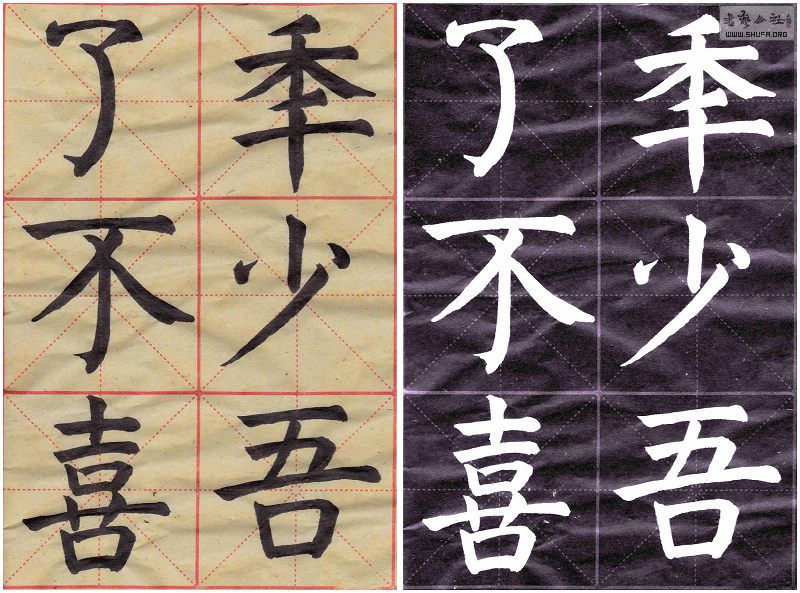 秊少吾
了不喜
秊少吾
了不喜
書藝公社
WWW.SHUFA.ORG